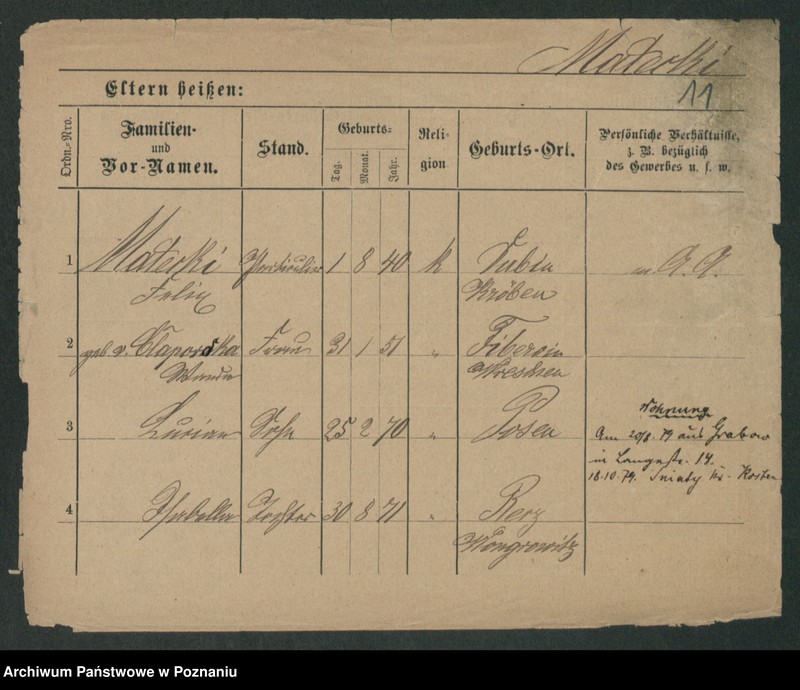 Małecki
11
Eltern heißen:
Ordn.-Nro.
Familien-
und
Vor-Namen.
Stand.
Geburts-
Tag.
Monat.
Jahr.
Reli-
gion
Geburts-Ort.
Persönliche Verhältnisse,
z. B. bezüglich
des Gewerbes u. s. w.
1 Małecki Particulier 1 8 40 k
Felix
Kröben
2 geb. v. Frau 31 1 51 "
Wanda
Wreschen
3 Lucian Sohn 25 2 70 " Posen
Wohnung
Am 20/8. 79 aus Grabow
in Langestr. 14.
18.10.79. Sniaty Kr. Kosten
4 Isabella Tochter 30 8 71 "
Wongrowitz
Archiwum Państwowe w Poznaniu